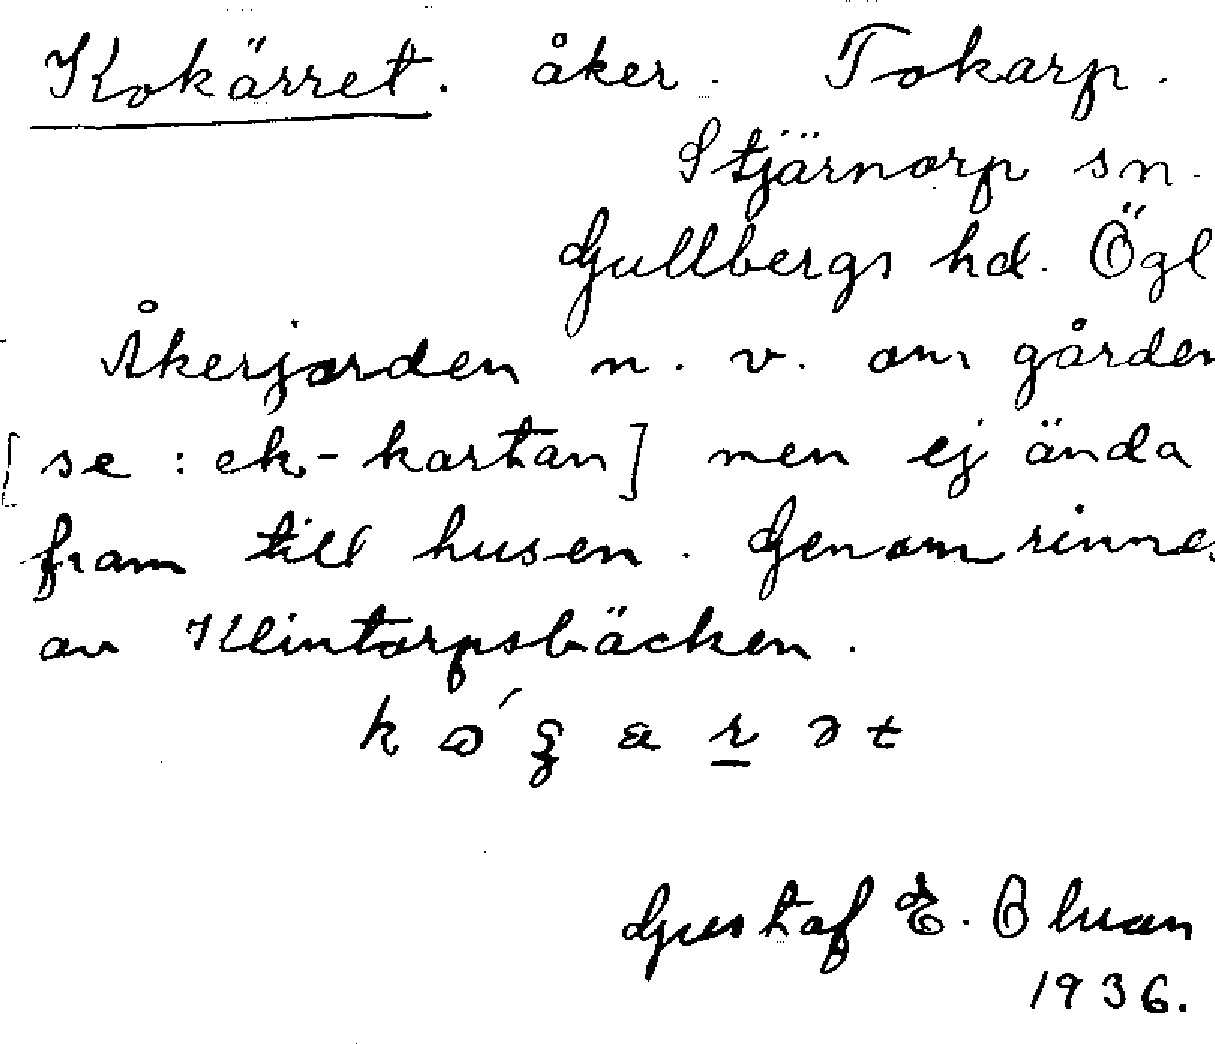 Kokärret. åker. Tokarp.
Stjärnorp sn.
Gullbergs hd. Ögl
Åkerjorden n. v. om gården
[se : ek-kartan] men ej ända
fram till husen. Genomrinnes
av Klintorpsbäcken.
1936.